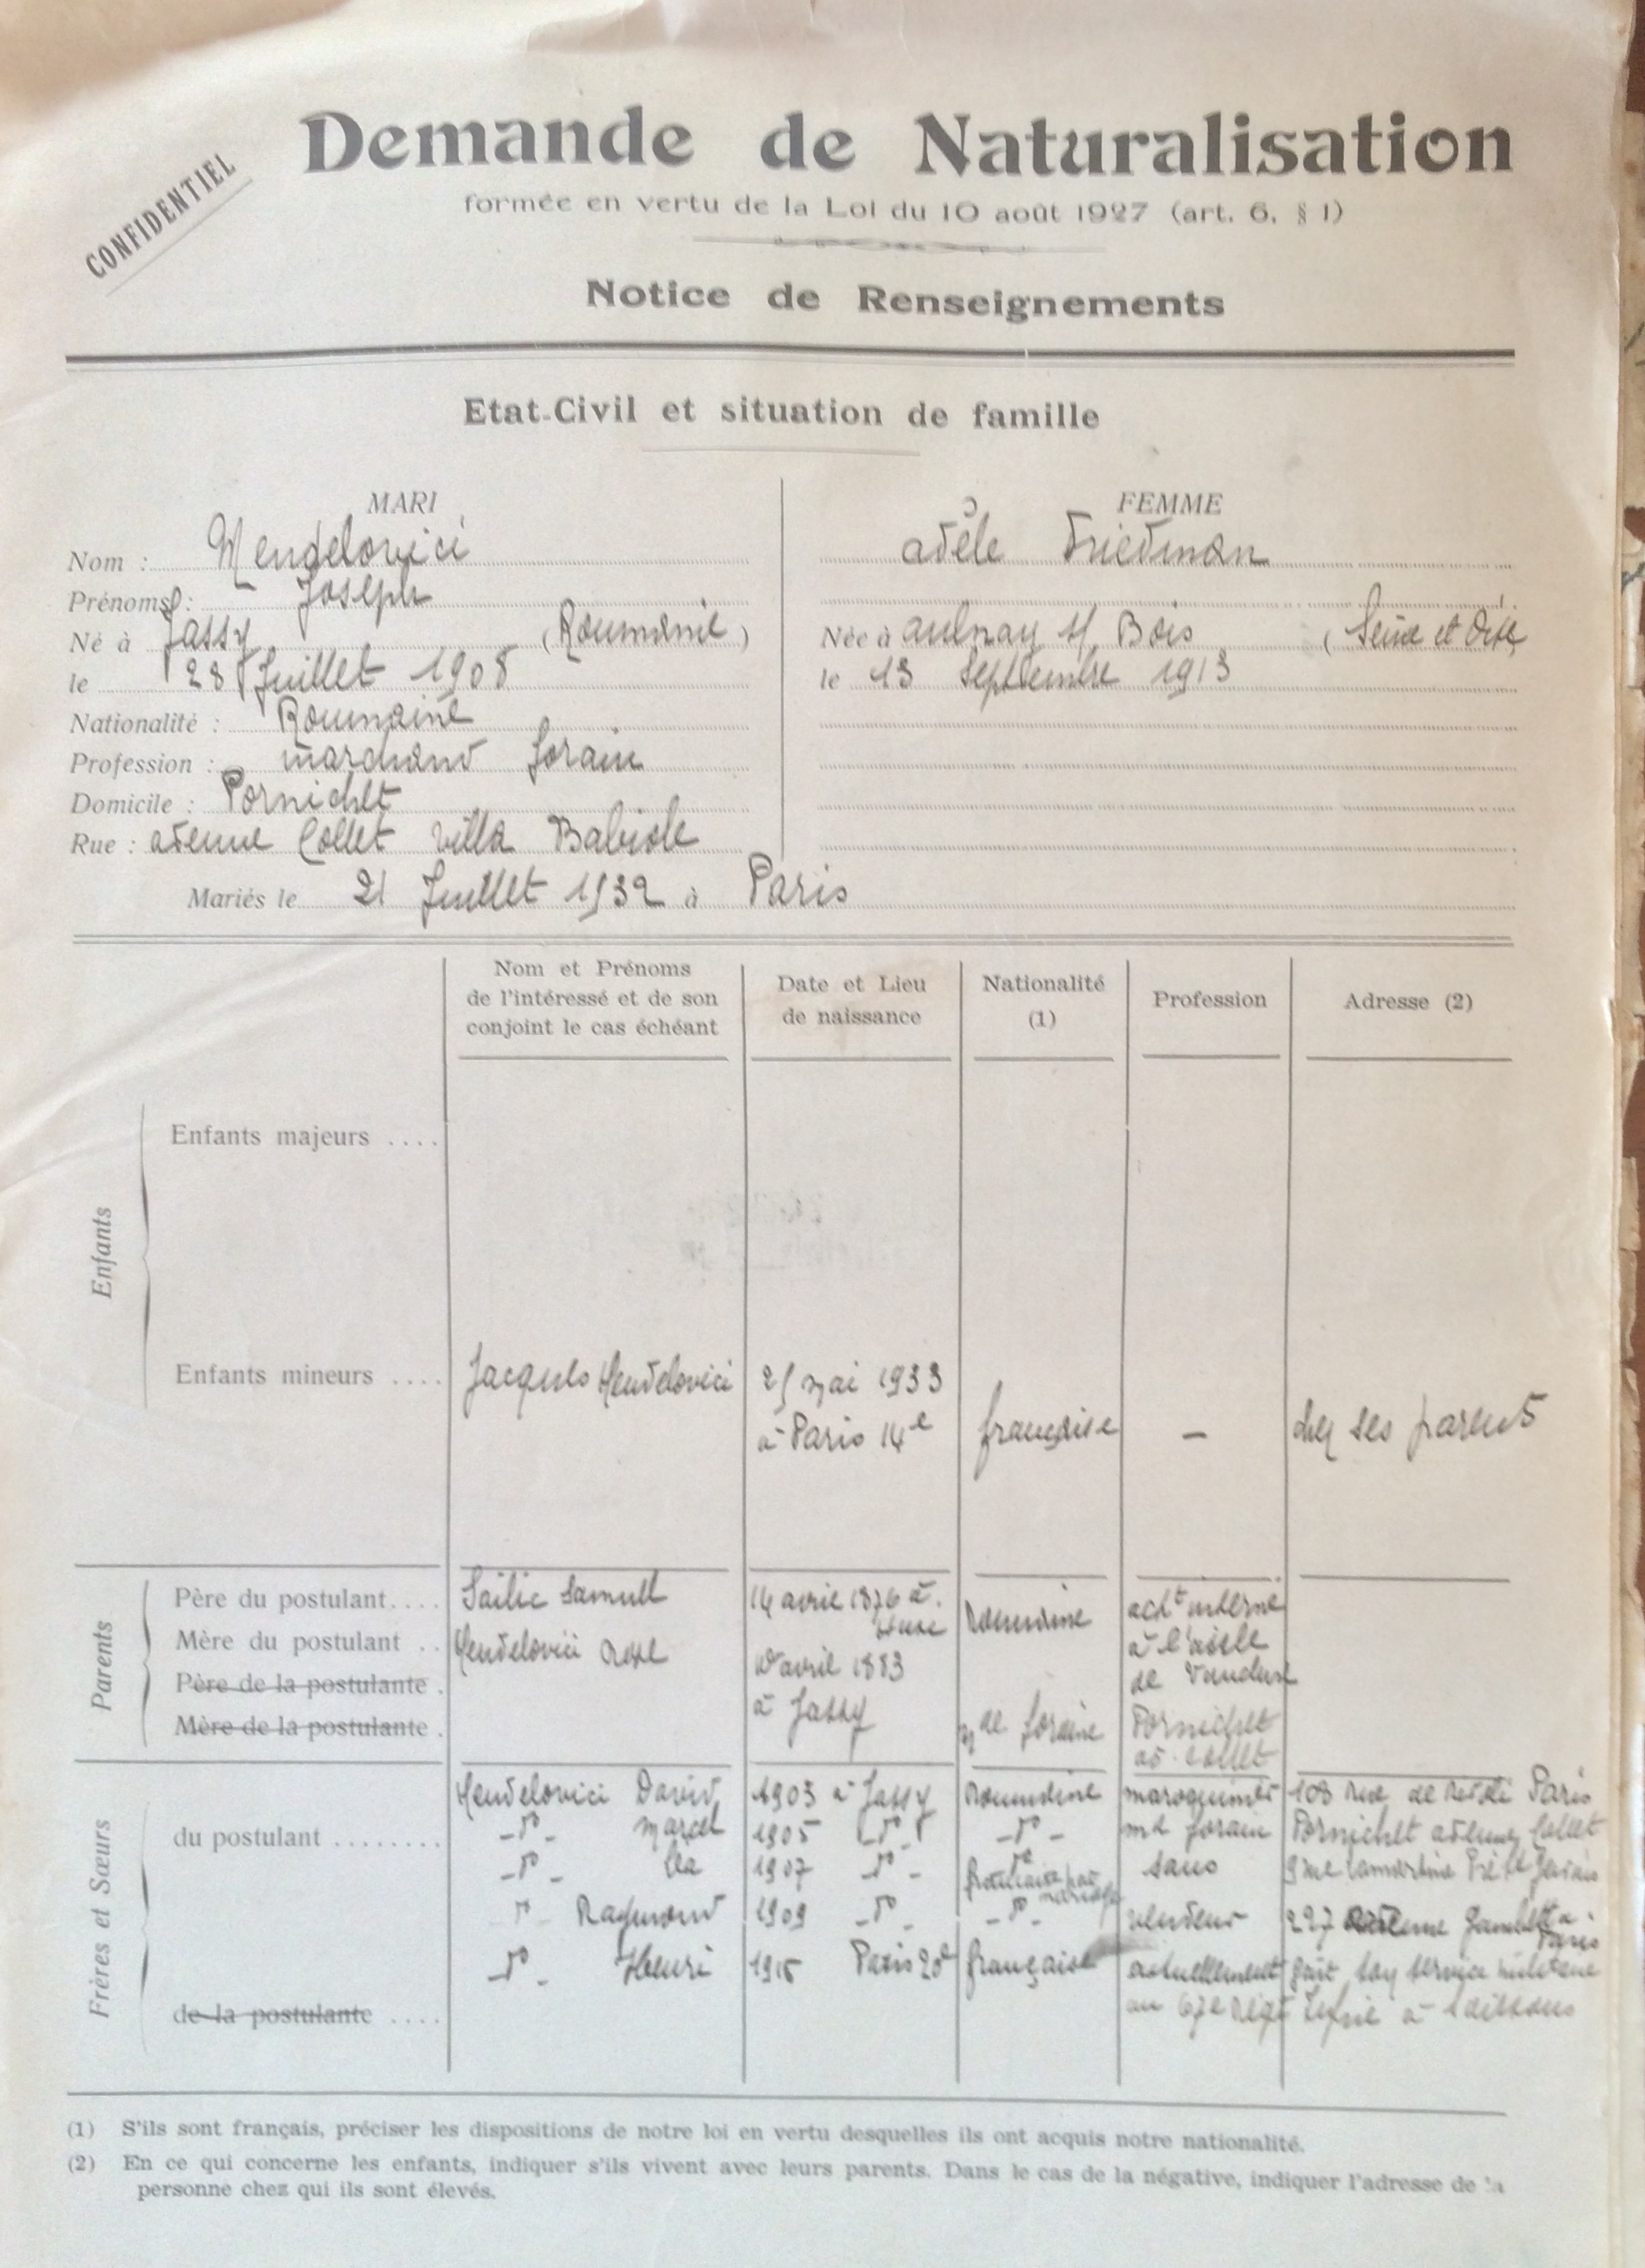 CONFIDENTIEL
Demande de Naturalisation
formée en vertu de la Loi du 10 août 1927 (art. 6, § 1)
Notice de Renseignements
Etat-Civil et situation de famille
MARI
Nom : Mendelovici
Prénoms : Joseph
Né à Jassy (Roumanie)
le 28 Juillet 1908
Nationalité : Roumaine
Profession : marchand forain
Domicile : Pornichet
Rue : avenue Collet villa Babiole
FEMME
adèle Friedman
Née à aulnay s/ Bois (Seine et Oise
le 13 septembre 1913
Mariés le 21 Juillet 1932 à Paris
Nom et Prénoms
de l'intéressé et de son
conjoint le cas échéant
Date et Lieu
de naissance
Nationalité
(1)
Profession
Adresse (2)
Enfants
Enfants majeurs ....
Enfants mineurs .... Jacques Mendelovici 25 mai 1933
à Paris 14e française - chez ses parents
Parents
Père du postulant.... Samuel 14 avril 1876 à
Roumaine interné
Mère du postulant .. Mendelovici à l'asile
avril 1883 de
Père de la postulante .
à Jassy
Mère de la postulante . de foraine Pornichet
av. Collet
Frères et Sœurs
du postulant ........ Mendelovici David 1903 à Jassy Roumaine maroquinier 108 rue de Rivoli Paris
-d°- Marcel 1905 -d°- -d°- md forain Pornichet avenue Collet
-d°- 1907 -d°- sans Lamartine Pré St Gervais
par mariage
d°- Raymond 1909 -d°- -d°- vendeur 227 Gambetta
Paris
-d°- Henri 1915 Paris 20e française actuellement fait son service militaire
au 67e Régt à Soissons
de la postulante ....
(1) S'ils sont français, préciser les dispositions de notre loi en vertu desquelles ils ont acquis notre nationalité.
(2) En ce qui concerne les enfants, indiquer s'ils vivent avec leurs parents. Dans le cas de la négative, indiquer l'adresse de la
personne chez qui ils sont élevés.